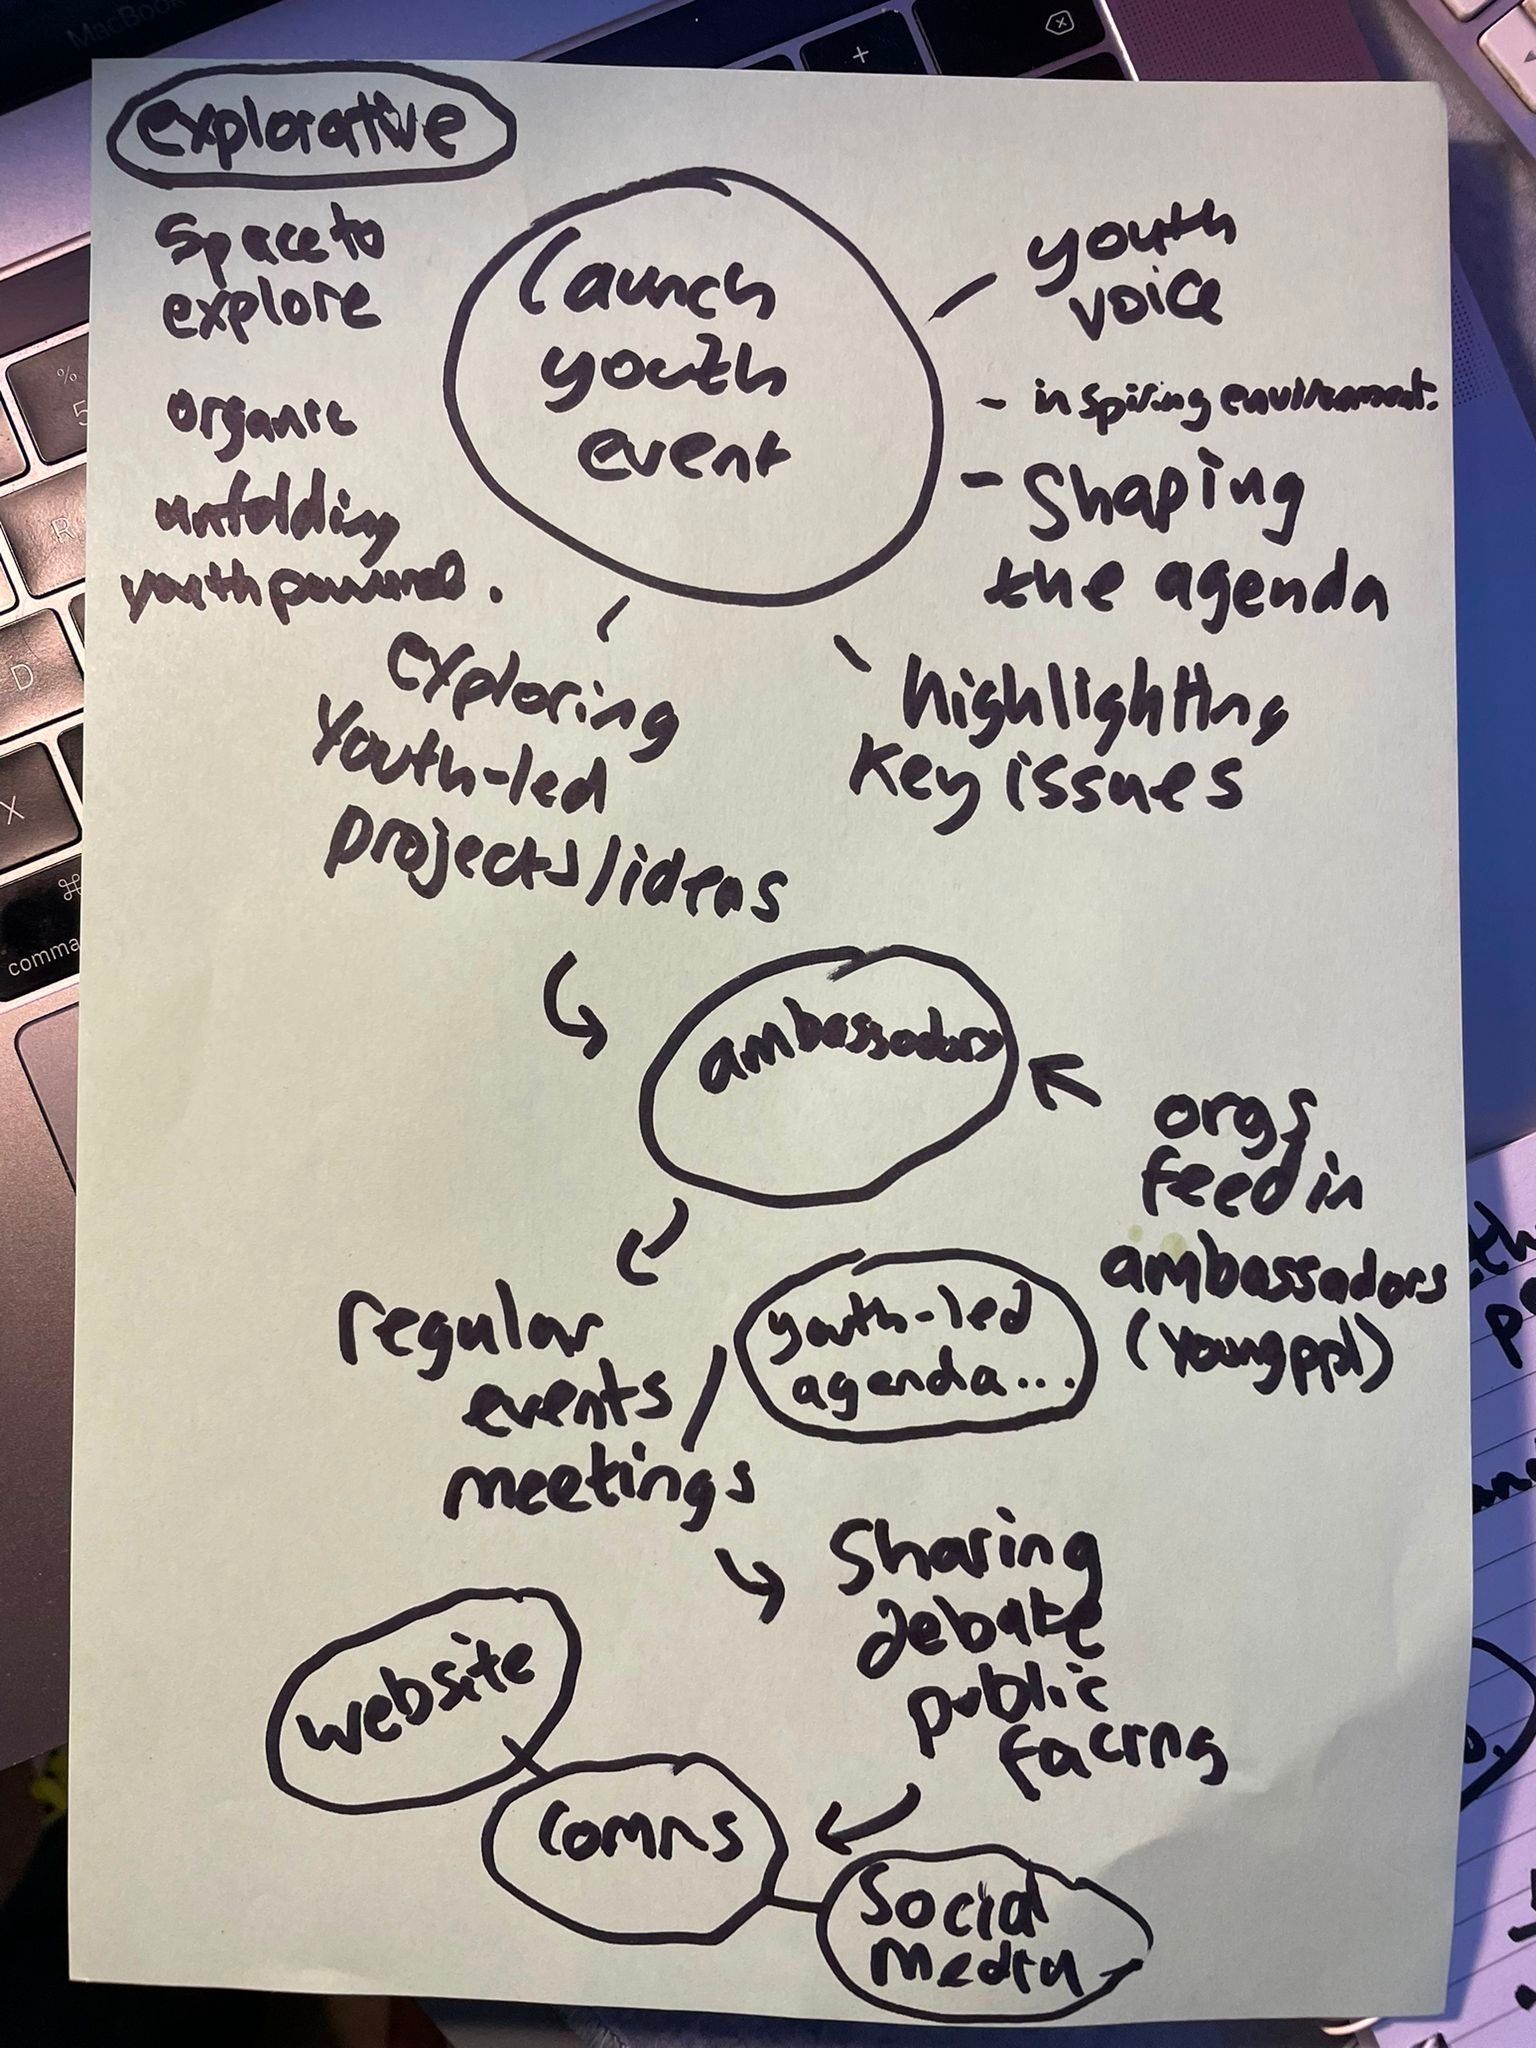 MacBook
explorative
Space to
explore
organic
unfolding
youth powered.
Launch
youth
event
youth
voice
- inspiring environment.
- Shaping
the agenda
highlighting
key issues
exploring
Youth-led
projects/ideas
ambassadors
orgs
feed in
ambassadors
(young ppl)
regular
events/
meetings
youth-led
agenda...
Sharing
debate
public
facing
website
comms
Social
Media
%
5
R
D
X
⌘
comma
+